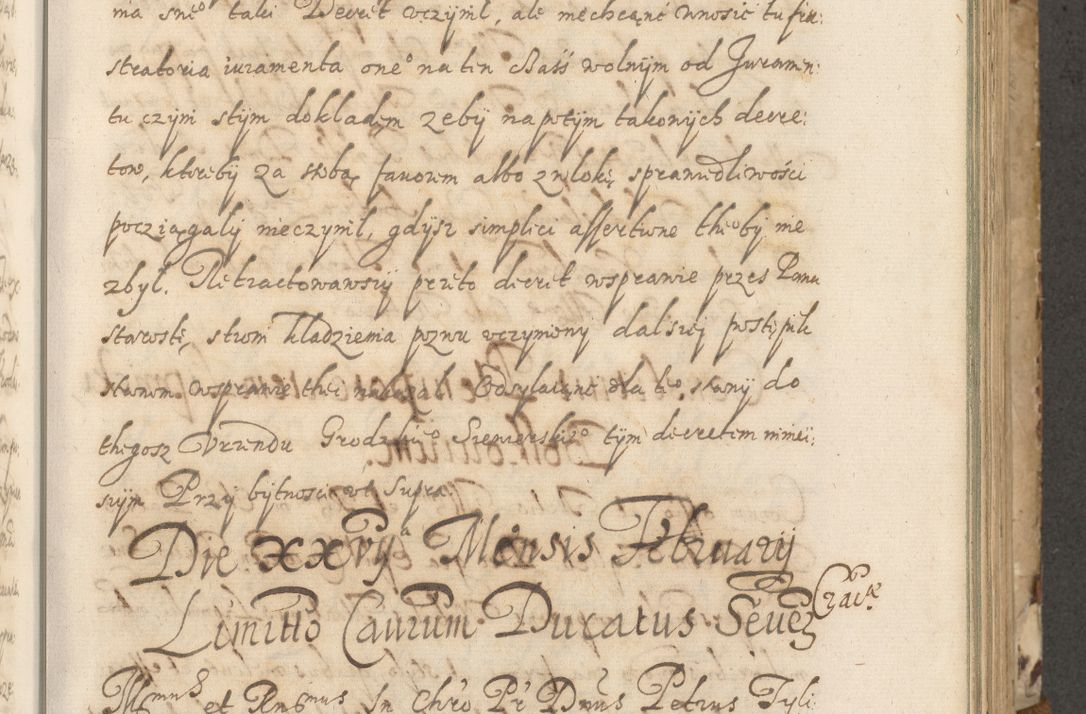 na sneº taki Decret uczynił, ale niechcąnc wnosic tu fru:
stratoria iuramenta oneº na tin czas wolnÿm od Juramen:
tu czyni stÿm dokładem zebÿ napotÿm takowÿch decre:
tow, ktorebÿ za sobą fauorem albo zwlokę sprawiedliwości
pocziągalÿ nieczynił, gdÿsz simplici assertione theºby nie
zbył. Retractowawszÿ przeto decret wsprawie przes Pana
starostę, strom kładzienia pozwu uczyniony dalszej postępik
stronom wsprawie thei nakazał Odsylaiąnc dla teº stronÿ do
thegosz Vrzendu Grodzkieº Siewierskieº tÿm decretem niniei:
szÿm Przÿ bÿtnosci ut supra.
Die XXVIJª Mensis Februarij
Limitto Caurum Ducatus Seuer Crac:æ
Mmus et Rndmus In Chrō Pr Dnus Petrus Tyli: